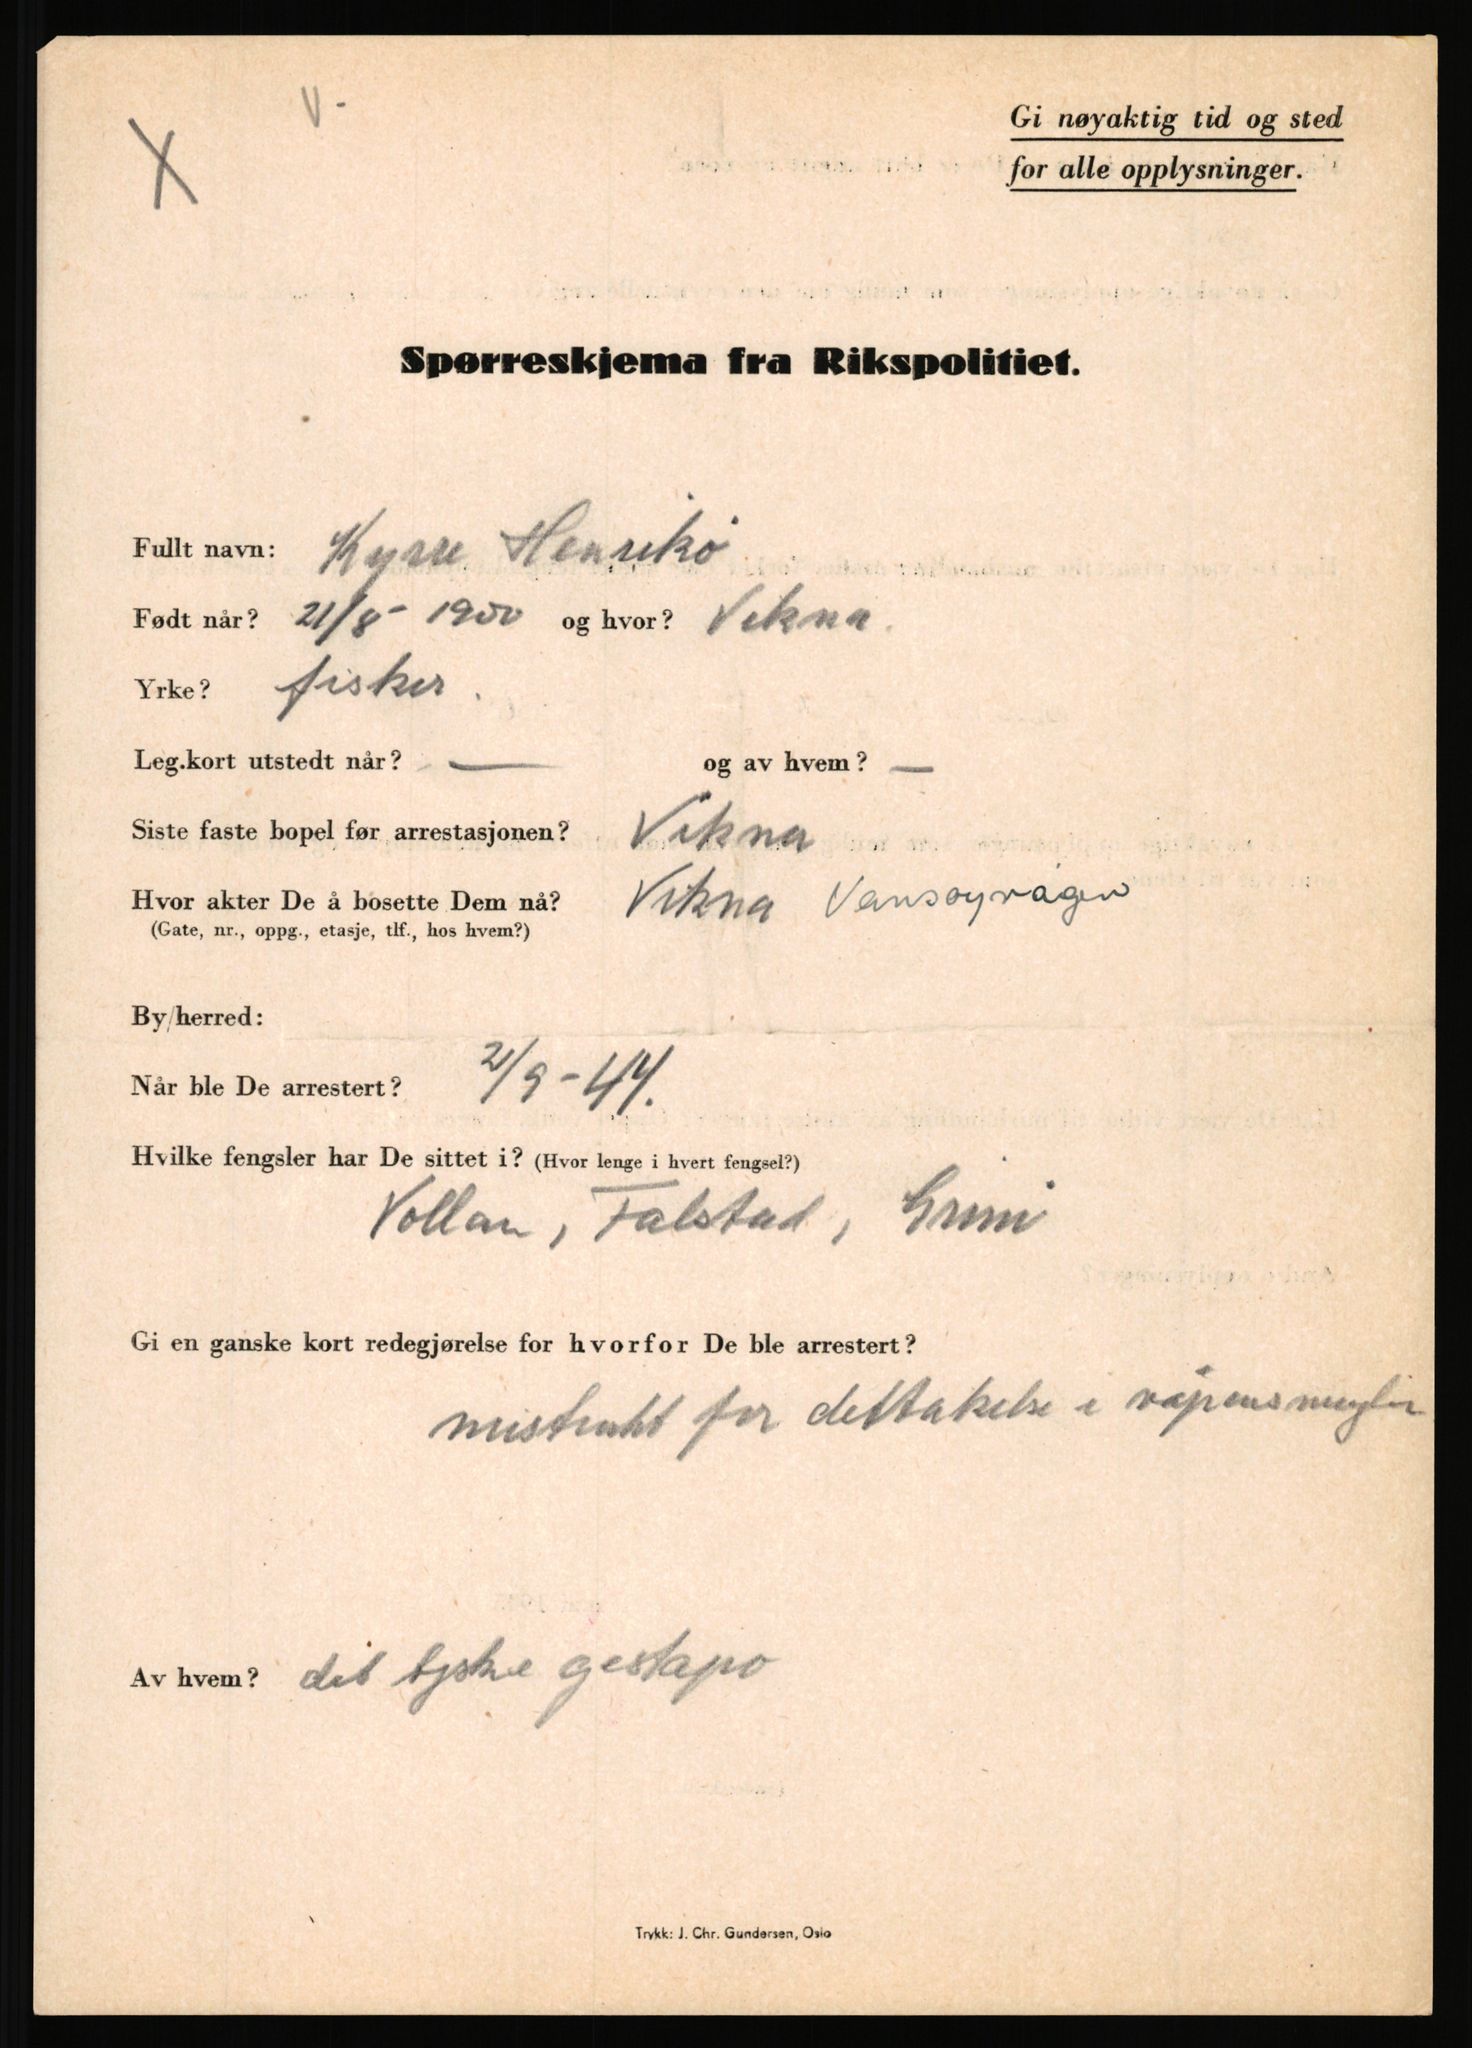 V-
X
Gi nøyaktig tid og sted
for alle opplysninger.
Spørreskjema fra Rikspolitiet.
Fullt navn: Kyrre Henrikø
Født når? 21/8-1900 og hvor? Vikna.
Yrke? fisker.
Leg.kort utstedt når? — og av hvem? —
Siste faste bopel før arrestasjonen? Vikna
Hvor akter De å bosette Dem nå? Vikna Vansøyvågen
(Gate, nr., oppg., etasje, tlf., hos hvem?)
By/herred:
Når ble De arrestert? 21/9-44.
Hvilke fengsler har De sittet i? (Hvor lenge i hvert fengsel?)
Vollan, Falstad, Grini
Gi en ganske kort redegjørelse for hvorfor De ble arrestert?
mistenkt for deltakelse i våpensmugling
Av hvem? det tyske gestapo
Trykk: J. Chr. Gundersen, Oslo